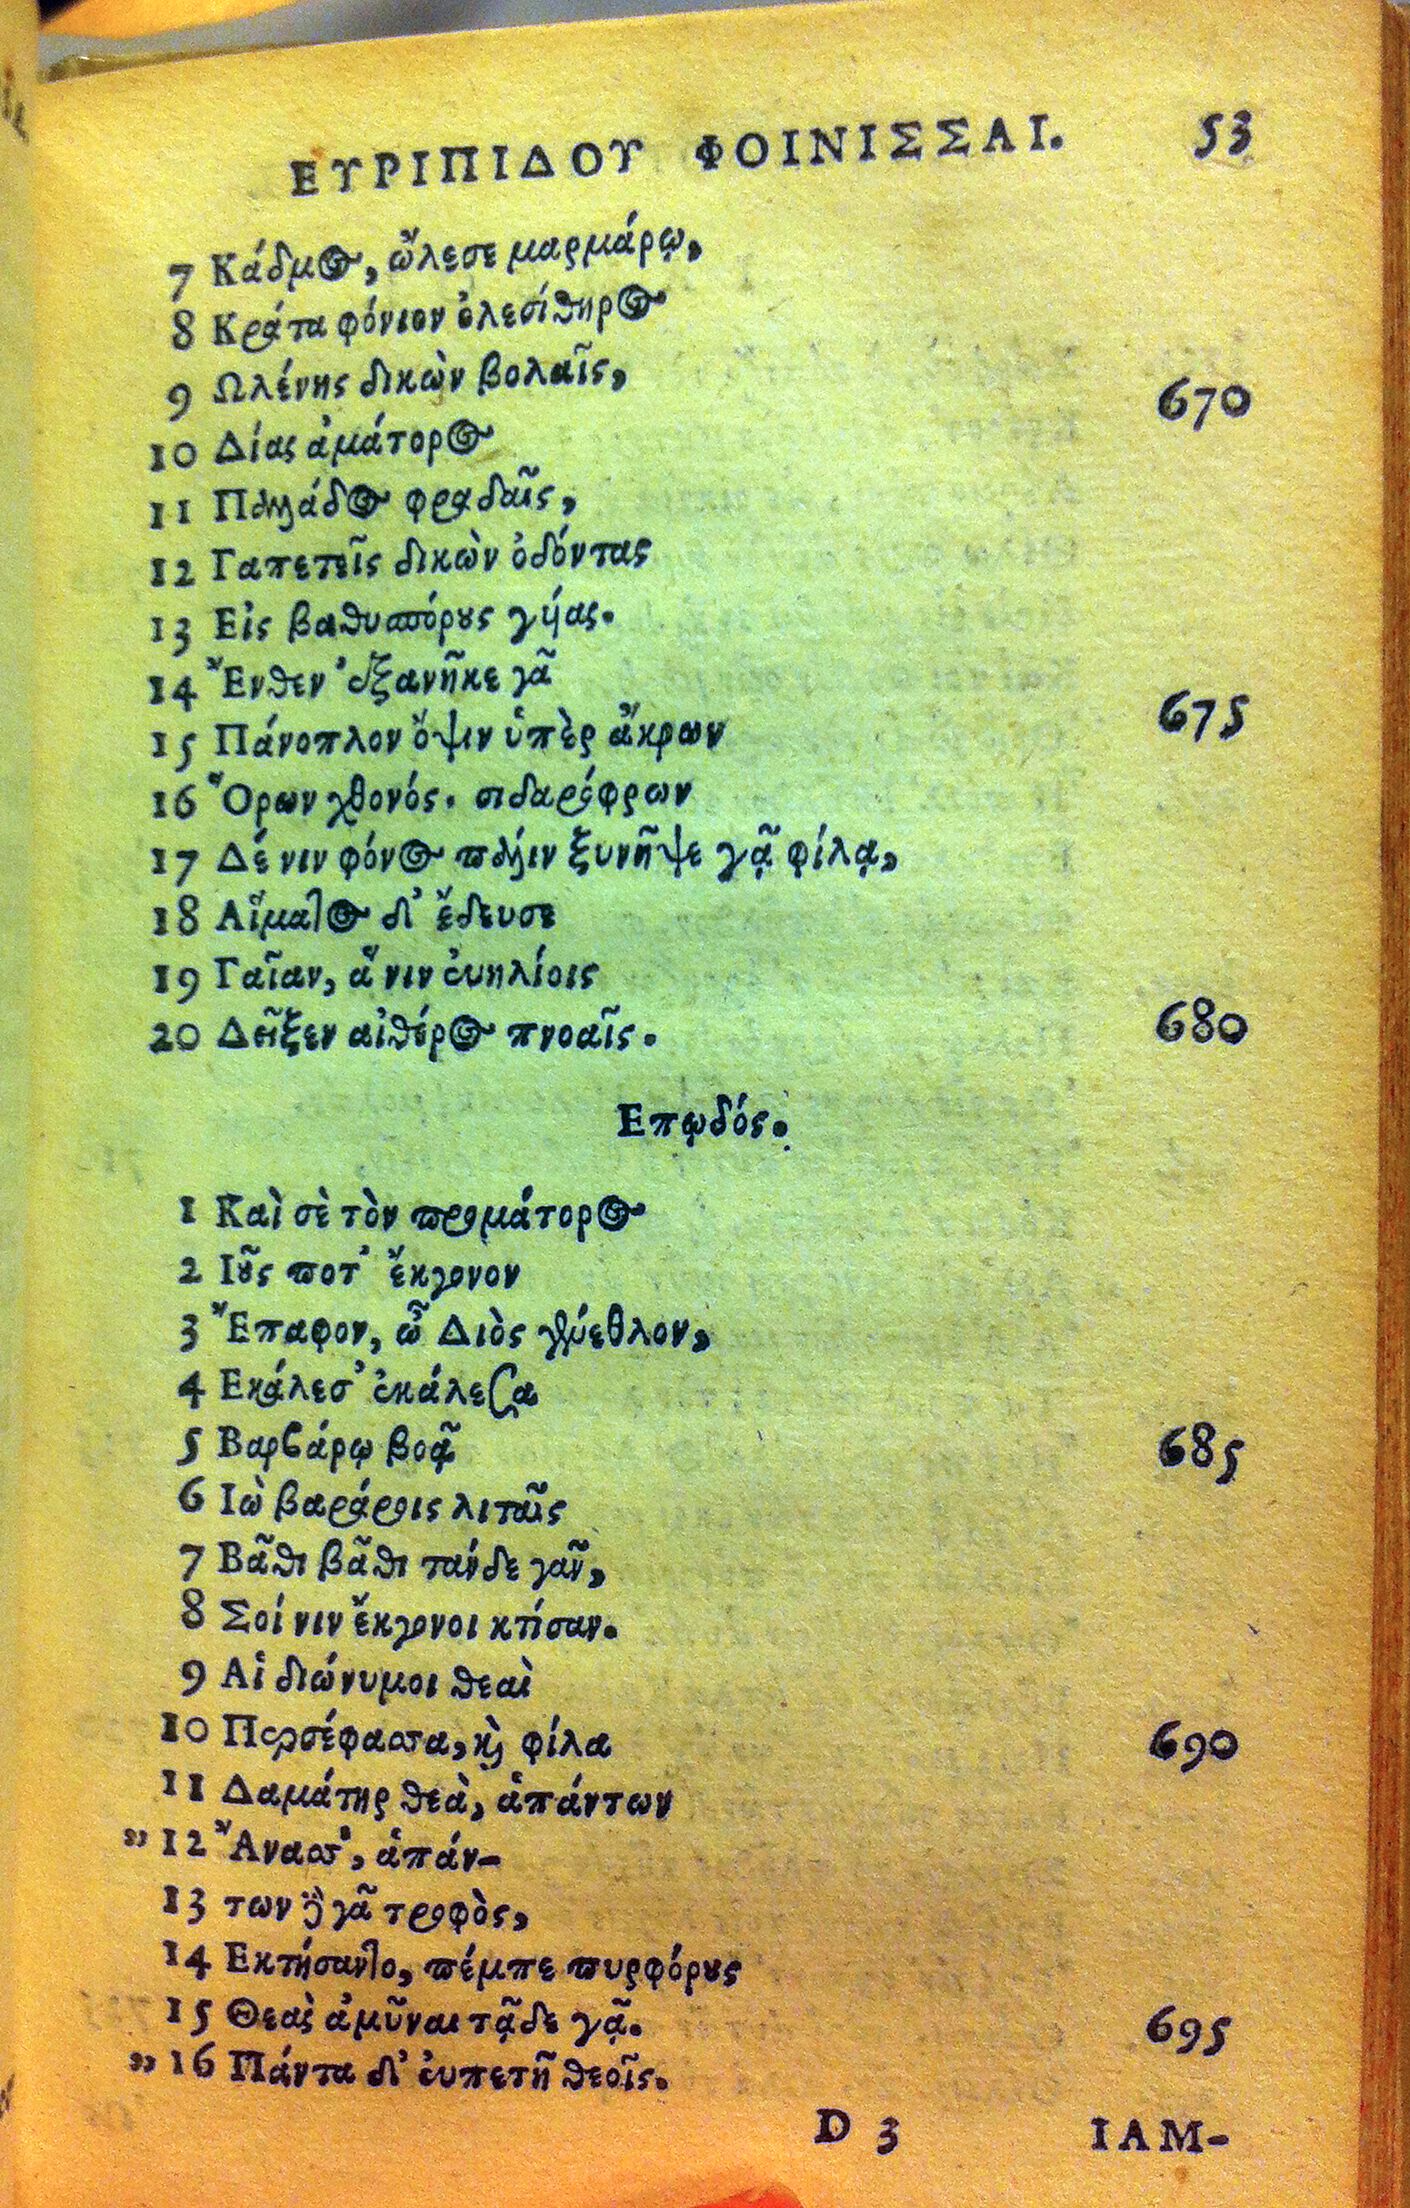 ΕΥΡΙΠΙΔΟΥ ΦΟΙΝΙΣΣΑΙ. 53
7 Κάδμος, ὤλεσε μαρμάρῳ,
8 Κράτα φόνιον ὀλεσίθηρος
9 Ωλένης δικὼν βολαῖς, 670
10 Δίας ἀμάτορος
11 Παλλάδος φραδαῖς,
12 Γαπετεῖς δικὼν ὀδόντας
13 Εἰς βαθυσπόρους γύας.
14 Ἔνθεν ἐξανῆκε γᾶ
15 Πάνοπλον ὄψιν ὑπὲρ ἄκρων 675
16 Ὅρων χθονός. σιδαρόφρων
17 Δέ νιν φόνος πάλιν ξυνῆψε γᾷ φίλᾳ,
18 Αἵματος δ' ἔδευσε
19 Γαῖαν, ἅ νιν εὐηλίοις
20 Δεῖξεν αἰθέρος πνοαῖς. 680
Επῳδός.
1 Καὶ σὲ τὸν προμάτορος
2 Ιοῦς ποτ' ἔκγονον
3 Ἔπαφον, ὦ Διὸς γένεθλον,
4 Εκάλεσ' ἐκάλεσα
5 Βαρβάρῳ βοᾷ 685
6 Ιὼ βαράροις λιταῖς
7 Βᾶθι βᾶθι τάνδε γᾶν,
8 Σοί νιν ἔκγονοι κτίσαν.
9 Αἱ διώνυμοι θεαὶ
10 Περσέφασσα, καὶ φίλα 690
11 Δαμάτηρ θεὰ, ἁπάντων
" 12 Ἄνασσ', ἁπάν-
13 των δὲ γᾶ τροφὸς,
14 Εκτήσαντο, πέμπε πυρφόρους
15 Θεὰς ἀμῦναι τᾷδε γᾷ. 695
" 16 Πάντα δ' εὐπετῆ θεοῖς.
D 3 ΙΑΜ-